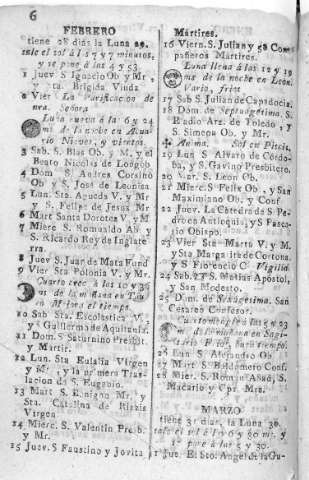 6
FEBRERO
tiene 28 dias la Luna 29.
sale el sol á l s 7 y 7 minutos,
y se pone á las 4 y 53.
1 Juev S Ignacio Ob y Mr,
ta. Brigida Viuda
2 Vier La Purificacion de
nra. Señora
Luna nueva á la 6 y 24
ms de la noche en Acua
rio Nieves, y vientos.
3 Sab. S Blas Ob. y M. y el
Beato Nicolas de Longob.
4 Dom S Andres Corsino
Ob y S. José de Leonisa
5 Lun. Sta Agueda V. y M
y S. Felipe de Jesus Mr
6 Mart Santa Dorotea V. y M
7 Mierc S Romualdo Ab. y
S. Ricardo Rey de Inglate
rra.
8 Juev S. Juan de Mata Fund
9 Vier Sta Polonia V. y Mr.
Quarto crec á las 10 y 36
ms de la mañana en Tau
ro Mejora el tiempo
10 Sab Sta. Escolastica V.
y Guillermo de Aquitania.
11 Dom S Saturnino Presbit.
y Martir.
12 Lun. Sta Eulalia Virgen
y M, y la primera Tras
lacion de S. Eugenio.
13 Mart S. Benigno Mr. y
Sta. Catalina de Riscis
Virgen
14 Mierc. S Valentin Presb.
y Mr.
15 Juev. S Faustino y Jovita
Mártires.
16 Viern. S. Julian y 58 Com
pañeros Martires.
Luna llena á las 12 y 19
ms de la noche en Leon.
Vario, frios
17 Sab S. Julian de Capadocia.
18 Dom de Septuagesima. S.
Eladio Arz. de Toledo y
S. Simeon Ob. y Mr.
Anima. Sol en Piscis.
19 Lun S Alvaro de Córdo-
ba, y S. Gavino Presbitero.
20 Mar. S. Leon Ob.
21 Mierc. S Felix Ob., y San
Maximiano Ob. y Conf.
22 Juev. La Cátedra de S Pe-
dro en Antioquia, y S Pasca-
sio Obispo.
23 Vier Sta Marta V. y M.
y Sta Margarita de Cortona.
y S Florencio C Vigilia
24 Sab S. Matias Apostol,
y San Modesto.
25 Dom. de Sexagesima. San
Cesareo Confesor.
Cuarto meng te á las 5 y 23
ms de la mañana en Sagi-
tario Frio,
26 Lun S. Alejandro Ob.
27 Mart S. Baldomero Conf.
28 Mier. S. Roman Abad, S.
Macario y Cps. Mrs.
MARZO
tiene 31 dias, la Luna 30.
sale el sol á las 6 y 30 ms. y
se pone á las 5 y 30.
1 Jue. El Sto. Angel de la Gu-